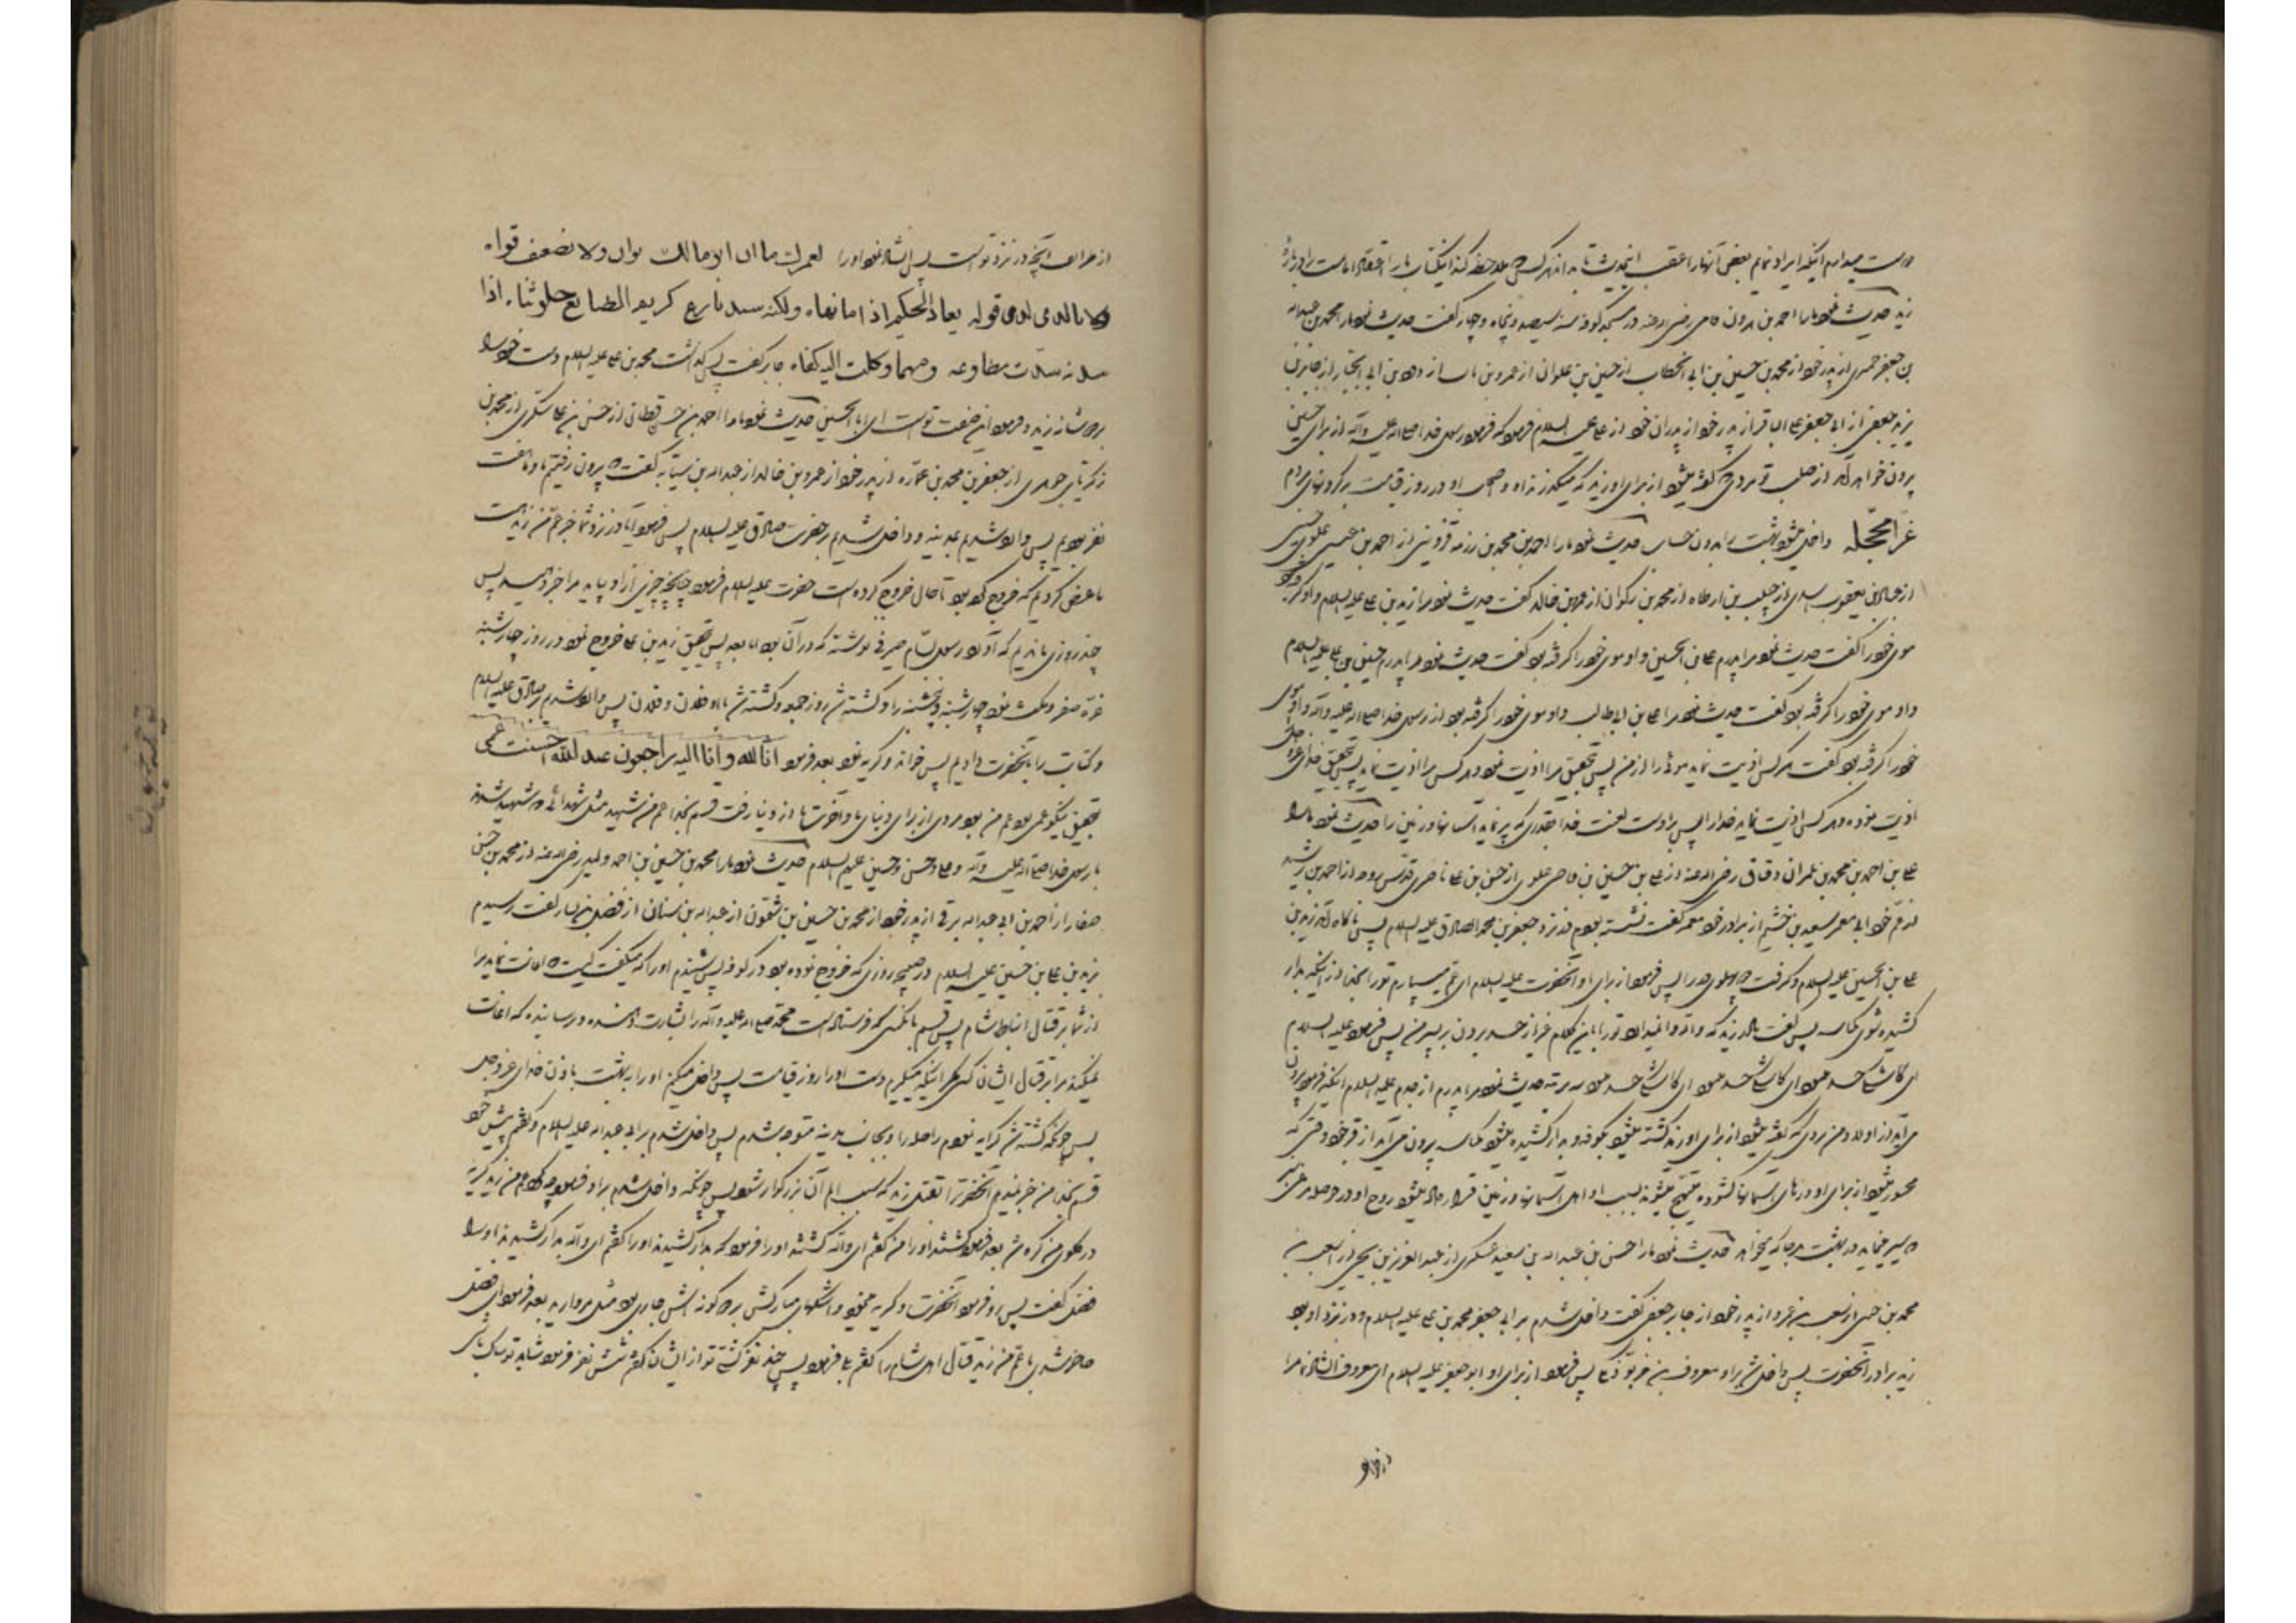 دوست میدارم اینکه ایراد نمایم بعض آنها را عقب اینحدیث تا به انهر کسی ملاحظه کند اینکتاب ما را اعتقاد امامیت را درباره
زید حدیث نمود ما را احمد بن هرون فامی رضی الله عنه در مسجد کوفه سنه سیصد و پنجاه و چهار گفت حدیث نمود ما را محمد بن عبدالله
بن جعفر حمیری از پدر خود از محمد بن حسین بن ابی الخطاب از حسین بن علوان از عمرو بن ثابت از داود بن ابی الجبار از جابر بن
یزید جعفی از ابی جعفر محمد الباقر از پدر خود از پدران خود از علی علیه السلام فرمود که فرمود رسول خدا صلی الله علیه و آله از برای حسین
بیرون خواهد آمد از صلب تو مردی که گفته میشود از برای او زید که میگذرند او و اصحاب او در روز قیامت بر گردنهای مردم
غرا محجله داخل میشوند بهشت را بدون حساب حدیث نمود ما را احمد بن محمد بن رزمه قزوینی از احمد بن عیسی علوی حسینی
از عباد بن یعقوب اسدی از حبیب بن ارطاه از محمد بن ذکوان از عمرو بن خالد گفت حدیث نمود مرا زید بن علی علیه السلام و او گرفته بود
موی خود را گفت حدیث نمود مرا پدرم علی بن الحسین و او موی خود را گرفته بود گفت حدیث نمود مرا پدرم حسین بن علی علیه السلام
و او موی خود را گرفته بود گفت حدیث نمود مرا علی بن ابی طالب و او موی خود را گرفته بود از رسول خدا صلی الله علیه و آله و او موی
خود را گرفته بود گفت هر کس اذیت نماید موئی را از من پس بتحقیق مرا اذیت نموده و هر کس مرا اذیت نماید پس بتحقیق خدای عز و جل
اذیت نموده و هر کس اذیت نماید خدا را پس بر اوست لعنت خدا بقدری که پر نماید آسمانها و زمین را حدیث نمود ما را
علی بن احمد بن محمد بن عمران دقاق رضی الله عنه از علی بن حسین بن قاضی علوی از حسن بن علی ناصری قدس روحه از احمد بن رشید
از عم خود ابی معمر سعید بن خثیم از برادر خود معمر گفت نشسته بودم نزد جعفر بن محمد الصادق علیه السلام پس ناگاه آمد زید بن
علی بن الحسین علیه السلام و گرفت پهلوی در را پس فرمود از برای او آنحضرت علیه السلام ای عم میسپارم تو را بخدا از اینکه بدار
کشیده شوی بکناسه پس گفت مادر زید که والله وانمیدارد تو را باین کلام غیر از حسد بردن بر پسر من پس فرمود علیه السلام
ای کاش حسد میبود ای کاش حسد میبود ای کاش حسد میبود سه مرتبه حدیث نمود مرا پدرم از جدم علیه السلام اینکه فرمود بیرون
می آید از اولاد من مردی که گفته میشود از برای او زید کشته میشود بکوفه و بدار کشیده میشود بکناسه بیرون می آید از قبر خود وقتی که
محشور میشود از برای او درهای آسمانها گشوده میشود بسبب او اهل آسمانها و زمین قرار داده میشود روح او در حوصله مرغ سبزی
که سیر مینماید در بهشت هر جا که میخواهد حدیث نمود ما را حسن بن عبدالله بن سعید عسکری از عبدالعزیز بن یحیی از اشعث بن
محمد بن ضبی از شعیب بن عمرو از پدر خود از جابر جعفی گفت داخل شدم بر ابی جعفر محمد بن علی علیه السلام و در نزد او بود
زید برادر آنحضرت پس داخل شد بر او معروف بن خربوذ مکی پس فرمود از برای او ابو جعفر علیه السلام ای معروف انشاد نما مرا
از طرایف آنچه در نزد توست پس انشاد نمود او را لعمرك ما ان ابو مالك بوان ولا بضعيف قواه
ولا بالد لدى قوله يعاد الحكيم اذا ما نهاه ولكنه سيد بارع كريم الطبايع حلو ثناه اذا
سدته سدت مطاوعه ومهما وكلت اليه كفاه جابر گفت پس گذاشت محمد بن علی علیه السلام دست خود را
بر دو شانه زید و فرمود این صفت توست ای ابا الحسین حدیث نمود ما را احمد بن حسن قطانی از حسن بن علی سکری از محمد بن
زکریای جوهری از جعفر بن محمد بن عماره از پدر خود از عمرو بن خالد از عبدالله بن سیابه گفت که بیرون رفتیم ما و هفت
نفر بودیم پس وارد شدیم بمدینه و داخل شدیم بر حضرت صادق علیه السلام پس فرمود آیا در نزد شما خبر عم من زید است
ما عرض کردیم که خروج کرده بود تا حال خروج کرده است حضرت علیه السلام فرمود چنانچه خبری از او بیاید مرا خبر دهید پس
چند روزی ماندیم که آمد رسول بسام صیرفی نوشته که در آن بود اما بعد پس بتحقیق زید بن علی خروج نمود در روز چهارشنبه
غره صفر و مکث نمود چهارشنبه و پنجشنبه را و کشته شد روز جمعه و کشته شد با او فلان و فلان پس وارد شدیم بر صادق علیه السلام
و کتاب را بآنحضرت دادیم پس خواند و گریه نمود بعد فرمود انا لله و انا اليه راجعون عند الله احتسبت عمى
بتحقیق نیکو عمی بود عم من بود مردی از برای دنیای ما و آخرت ما از دنیا رفت قسم بخدا عم من شهید مثل شهدائی که شهید شدند
با رسول خدا صلی الله علیه و آله و علی و حسن و حسین علیهم السلام حدیث نمود ما را محمد بن حسین بن احمد ولید رضی الله عنه از محمد بن حسن
صفار از احمد بن ابی عبدالله برقی از پدر خود از محمد بن حسین بن شمون از عبدالله بن سنان از فضیل بن یسار گفت رسیدم
بزید بن علی بن حسین علیه السلام در صبح روزی که خروج نموده بود در کوفه پس شنیدم او را که میگفت کیست که اعانت نماید مرا
از شما بر قتال انباط شام پس قسم بآنکسی که فرستاده است محمد صلی الله علیه و آله را بشارت دهنده و ترساننده که اعانت
نمیکند مرا بر قتال ایشان کسی مگر اینکه میگیرم دست او را روز قیامت پس داخل میکنم او را به بهشت باذن خدای عز و جل
پس چونکه کشته شد کرایه نمودم راحله را و بجانب مدینه متوجه شدم پس داخل شدم بر ابی عبدالله علیه السلام و گفتم پیش خود
قسم بخدا من خبر نمیدهم آنحضرت را بقتل زید که سبب الم آن بزرگوار شود پس چونکه داخل شدم بر او فرمود چه کرد عم من زید گریه
در گلوی من گره شد بعد فرمود کشتند او را من گفتم ای والله کشتند او را فرمود که بدار کشیدند او را گفتم ای والله بدار کشیدند او را
فضیل گفت پس رو فرمود آنحضرت و گریه مینمود و اشکهای مبارکش بر دو گونه اش جاری بود مثل مروارید بعد فرمود ای فضیل
حاضر شدی با عم من زید قتال اهل شام را گفتم بلی فرمود پس چند نفر کشتی تو از ایشان گفتم شش نفر فرمود شاید تو شک داری
در خو